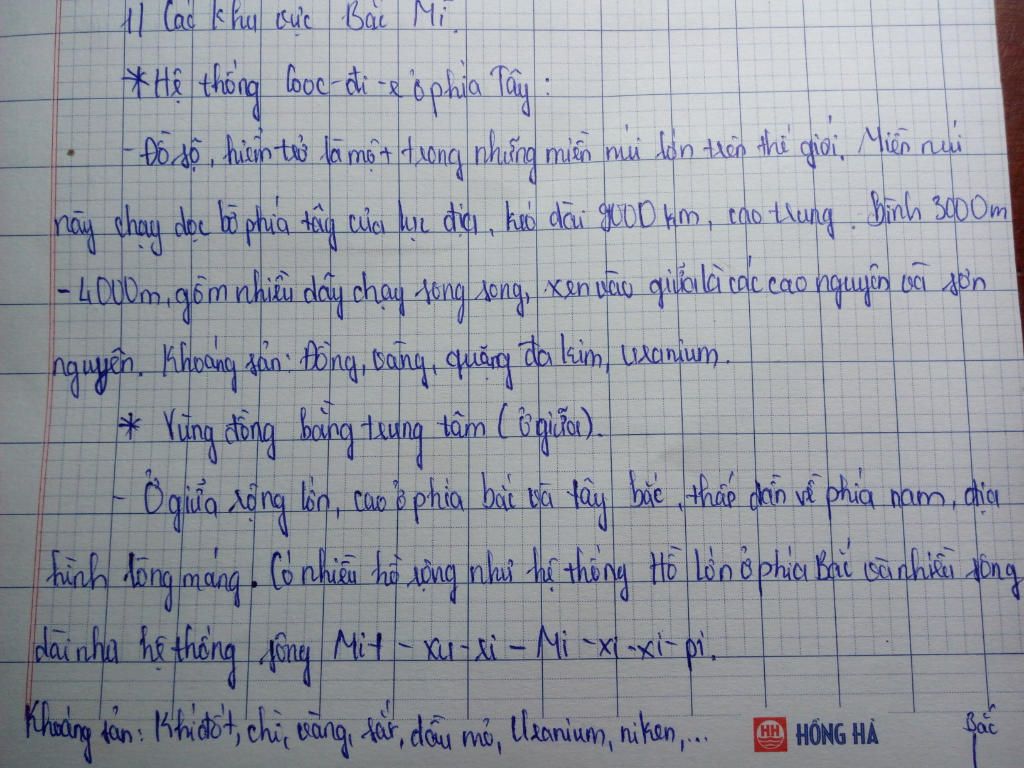 1) Các khu vực Bắc Mĩ.
* Hệ thống Cooc-đi-e ở phía Tây:
- Đồ sộ, hiểm trở là một trong những miền núi lớn trên thế giới. Miền núi
này chạy dọc bờ phía tây của lục địa, kéo dài 9000 km, cao trung bình 3000m
- 4000m, gồm nhiều dãy chạy song song, xen vào giữa là các cao nguyên và sơn
nguyên. Khoáng sản: Đồng, vàng, quặng đa kim, uranium.
* Vùng đồng bằng trung tâm (ở giữa).
- Ở giữa rộng lớn, cao ở phía bắc và tây bắc, thấp dần về phía nam, địa
hình lòng máng. Có nhiều hồ rộng như hệ thống Hồ lớn ở phía Bắc và nhiều sông
dài như hệ thống sông Mit - xu - xi - Mi - xi - xi - pi.
Khoáng sản: Khí đốt, chì, vàng, sắt, dầu mỏ, Uranium, niken,...
HH HỒNG HÀ
Bắc